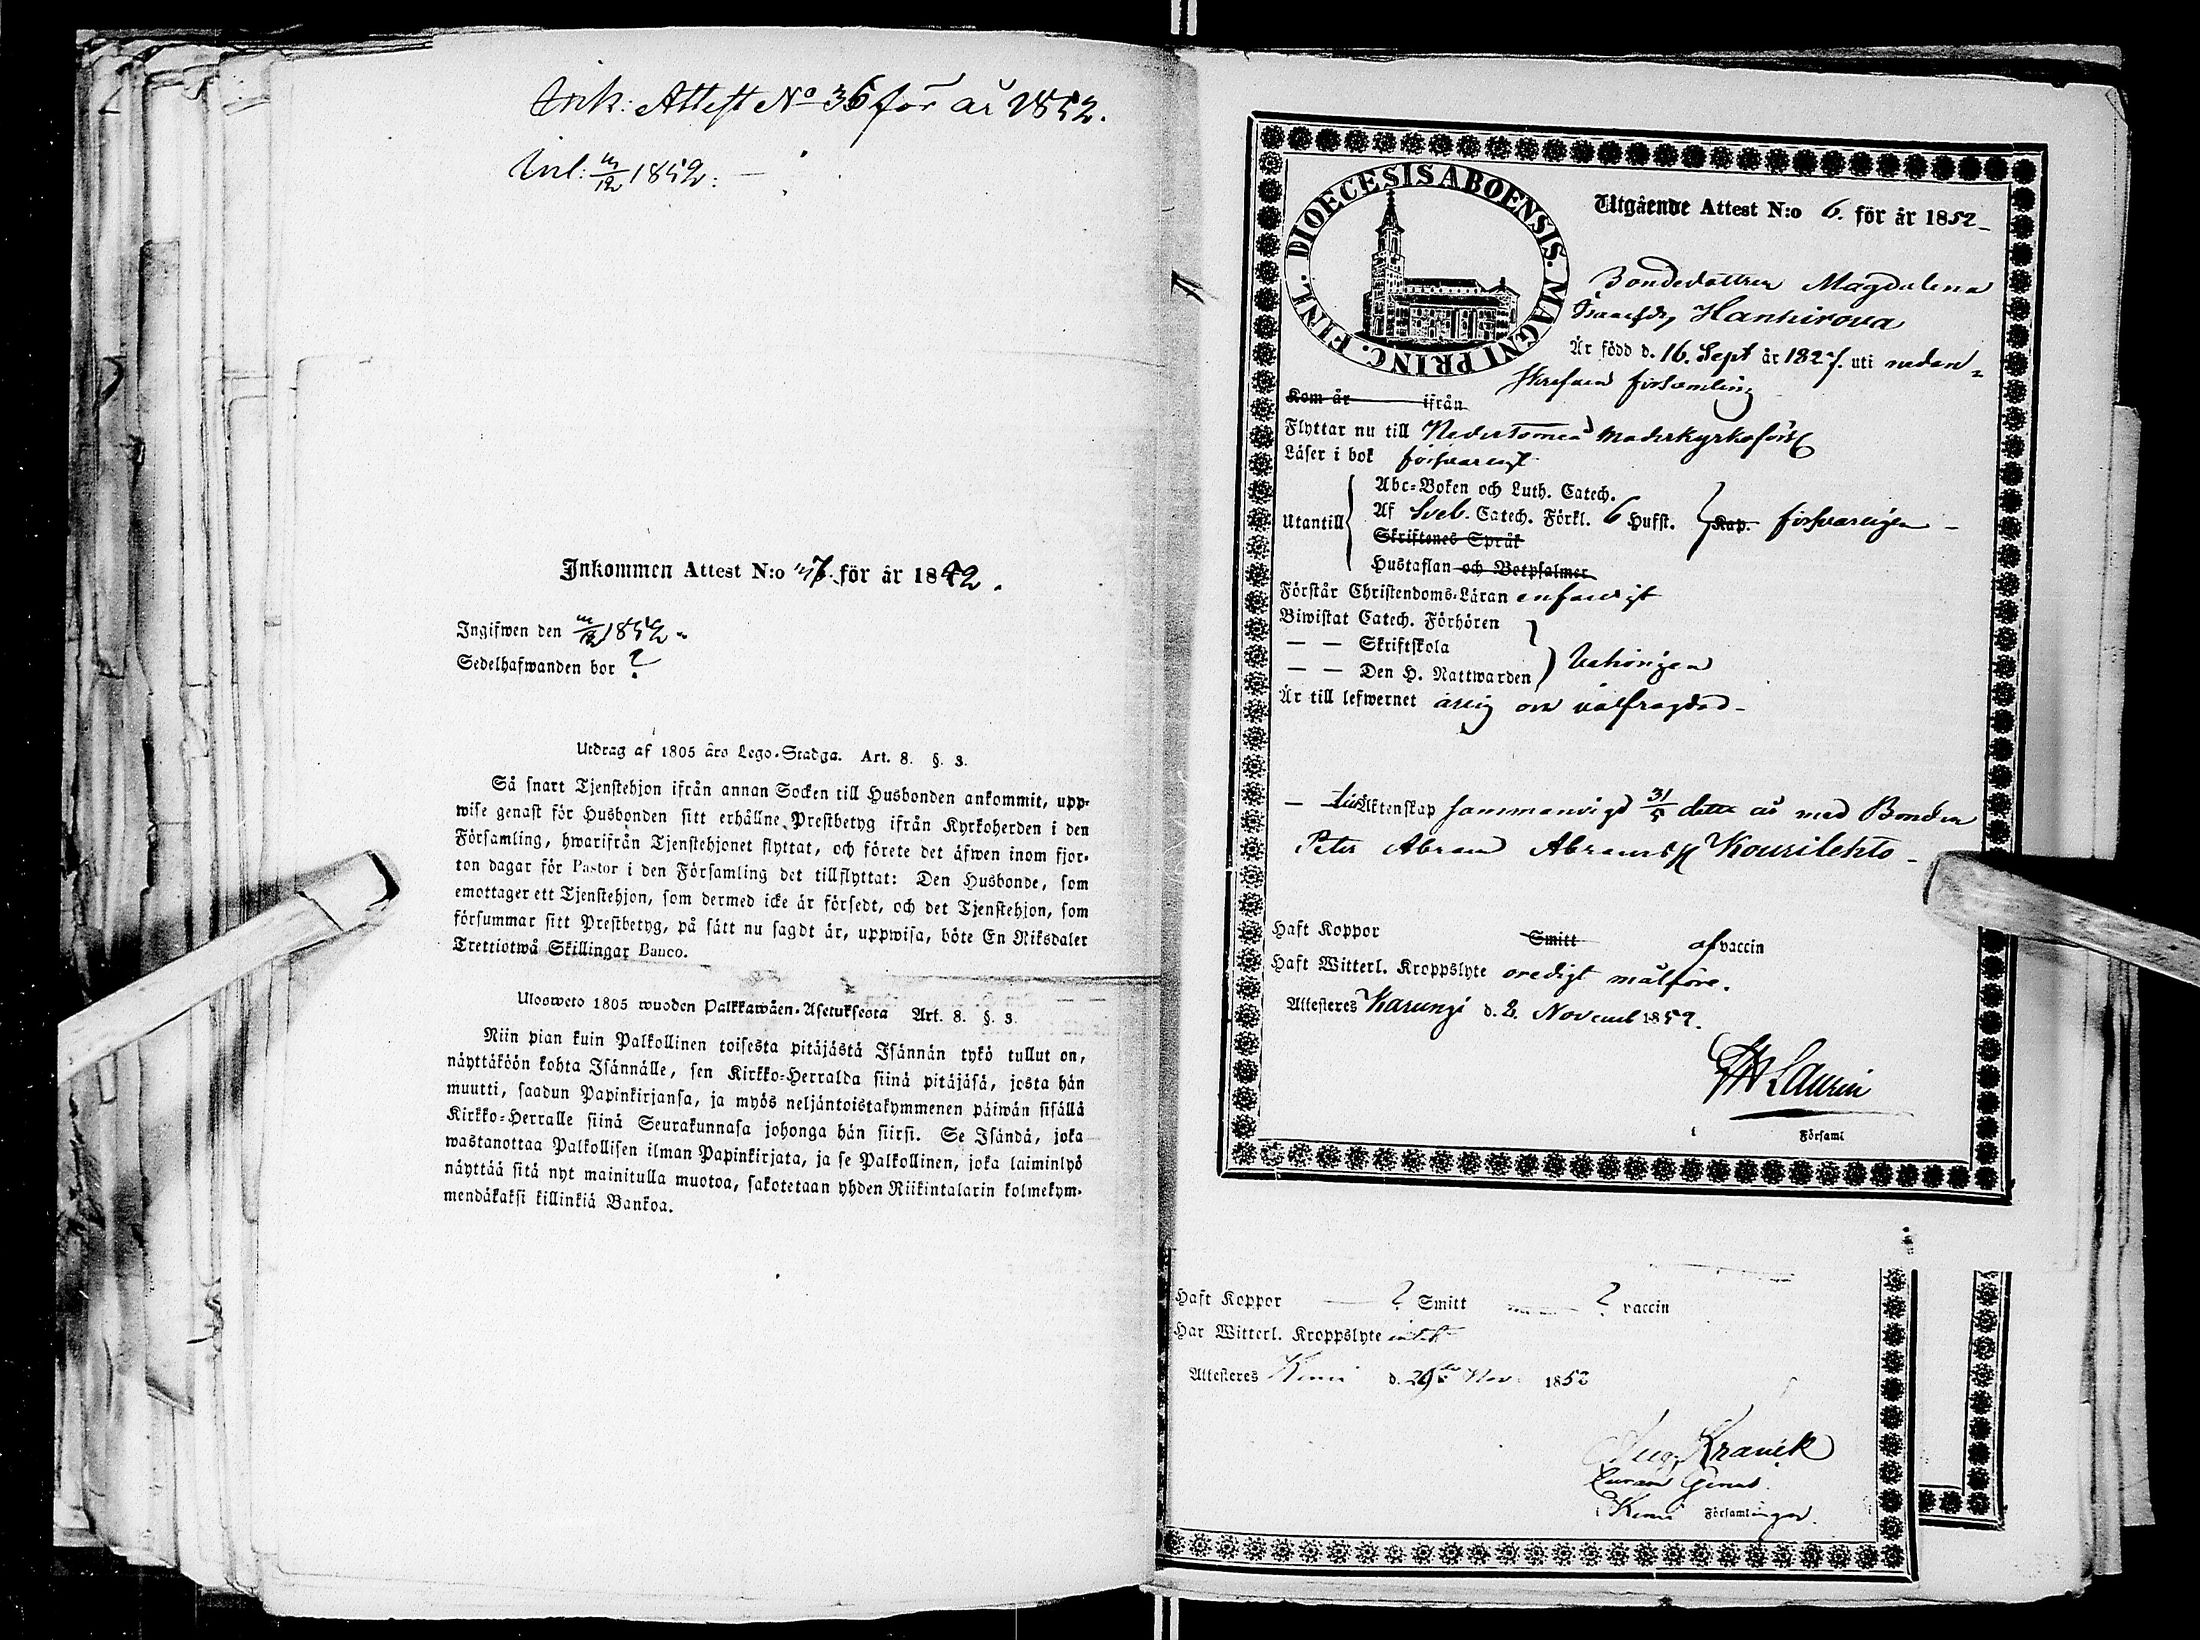 Ink: Attest No 36 för år 1852.
Inl: 12 1852.
Inkommen Attest N:o 37. för år 1852.
Ingifwen den 12 1852.
Sedelhafwanden bor ?
Utdrag af 1805 års Lego-Stadga. Art. 8. §. 3.
Så snart Tjenstehjon ifrån annan Socken till Husbonden ankommit, upp-
wise genast för Husbonden sitt erhållne Prestbetyg ifrån Kyrkoherden i den
Församling, hwarifrån Tjenstehjonet flyttat, och förete det äfwen inom fjor-
ton dagar för Pastor i den Församling det tillflyttat: Den Husbonde, som
emottager ett Tjenstehjon, som dermed icke är försedt, och det Tjenstehjon, som
försummar sitt Prestbetyg, på sätt nu sagdt är, uppwisa, böte En Riksdaler
Trettiotwå Skillingar Banco.
Ulosweto 1805 wuoden Palkkawäen-Asetuksesta Art. 8. §. 3.
Niin pian kuin Palkollinen toisesta pitäjästä Isännän tykö tullut on,
näyttäköön kohta Isännälle, sen Kirkko-Herralda siinä pitäjäsä, josta hän
muutti, saadun Papinkirjansa, ja myös neljäntoistakymmenen päiwän sisällä
Kirkko-Herralle siinä Seurakunnasa johonga hän siirsi. Se Isändä, joka
wastanottaa Palkollisen ilman Papinkirjata, ja se Palkollinen, joka laiminlyö
näyttää sitä nyt mainitulla muotoa, sakotetaan yhden Riikintalarin kolmekym-
mendäkaksi killinkiä Bankoa.
DIOECESIS ABOENSIS. MAGNI PRINC. FINL.
Utgående Attest N:o 6. för år 1852
Bondedottren Magdalena
Hankirova
Är född d. 16. Sept år 1827. uti nedan-
skrefven församling
Kom år ifrån
Flyttar nu till Neder Torneå Moderkyrkoförs
Läser i bok försvarligt
Abc-Boken och Luth. Catech.
Utantill Af Sveb. Catech. Förkl. 6 Hufst. Kap. försvarligen
Skriftenes Språk
Hustaflan och Botpsalmer
Förstår Christendoms-Läran enfaldigt
Biwistat Catech. Förhören
— — Skriftskola
— — Den H. Nattwarden behörigen
Är till lefwernet ärlig och välfrägdad
Äktenskap sammanvigd 31/5 detta år med Bonden
Peter Abram Abramss Kourilehto
Haft Koppor Smitt af vaccin
Haft Witterl. Kroppslyte oredigt målföre.
Attesteres Karungi d. 2. Novemb 1852.
Laurin
i Församl
Haft Koppor ? Smitt ? vaccin
Har Witterl. Kroppslyte intet
Attesteres Kemi d. 29de Nov. 1852
Aug. Kranck
i Kemi Församlingar.